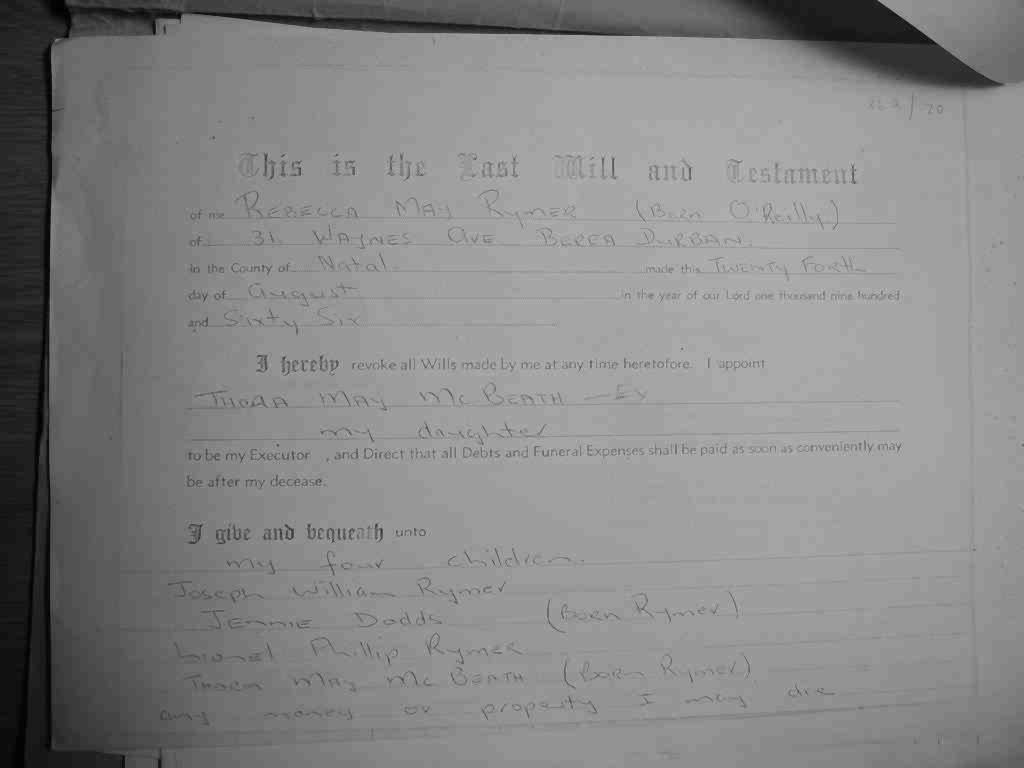 This is the Last Will and Testament
of me REBECCA MAY RYMER (Born O'Reilly)
of 31 WAYNES AVE BEREA DURBAN.
in the County of Natal. made this TWENTY FORTH
day of August in the year of our Lord one thousand nine hundred
and Sixty Six
I hereby revoke all Wills made by me at any time heretofore. I appoint
THORA MAY MC BEATH — Ex
my daughter
to be my Executor , and Direct that all Debts and Funeral Expenses shall be paid as soon as conveniently may
be after my decease.
I give and bequeath unto
my four children.
Joseph William Rymer
JENNIE Dodds (Born Rymer)
Lionel Phillip Rymer
THORA MAY MC BEATH (Born Rymer)
any money or property I may die